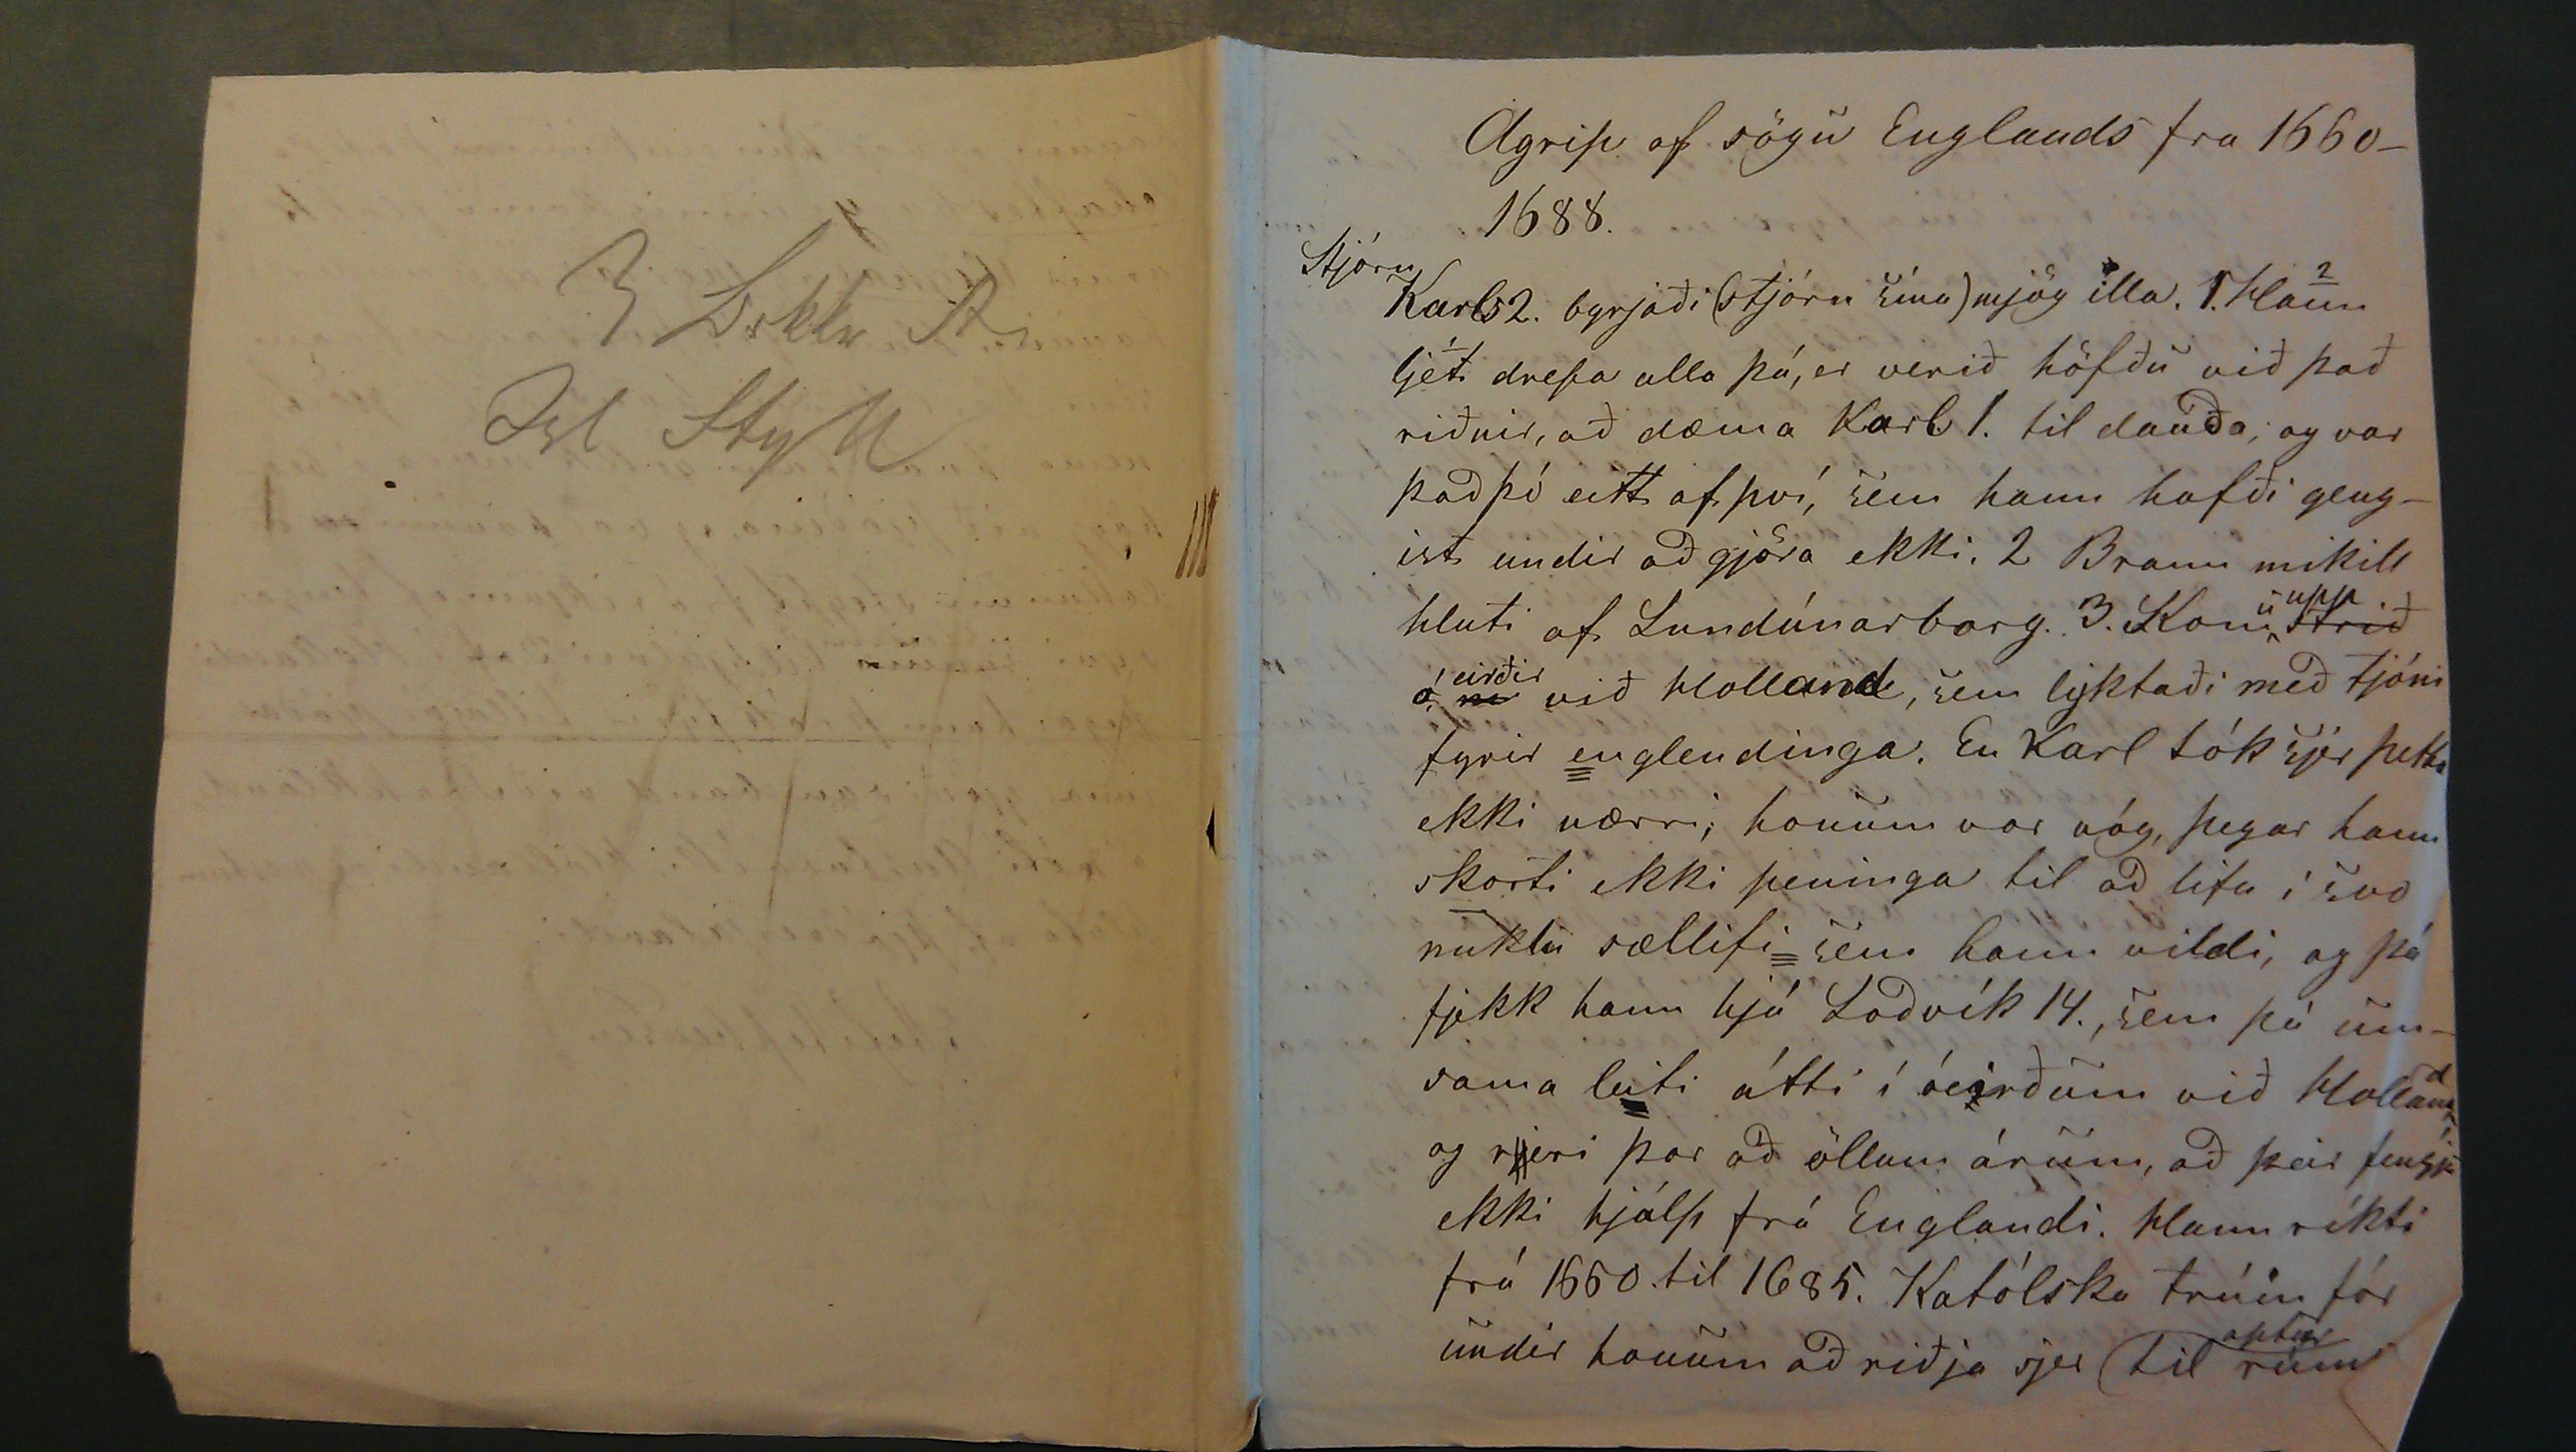 3 Bekkr A.
Isl Styll
Agrip af sögu Englands fra 1660-
1688.
Stjórn
Karls 2. byrjaði (stjórn sína) mjög illa. 1. Hann 2
ljét drepa alla þá, er verið höfðu við það
riðnir, að dæma Karl 1. til dauða, og var
það þó eitt af því, sem hann hafði geng-
ist undir að gjöra ekki. 2 Brann mikill
hluti af Lundúnarborg. 3. Komu upp Strið
óeirðir við Holland, sem lyktaði með tjóni
fyrir englendinga. En Karl tók sjer þetta
ekki nærri; honum var nóg, þegar hann
skorti ekki peninga til að lifa í svo
miklu sællifi sem hann vildi, og þá
fjekk hann hjá Loðvík 14., sem þá um-
sama leiti átti í óeirðum við Holland
og rjeri þar að öllum árum, að þeir fengju
ekki hjálp frá Englandi. Hann ríkti
frá 1660 til 1685. Katólska trúin fór
undir honum að riðja sjer (til rúms aptur